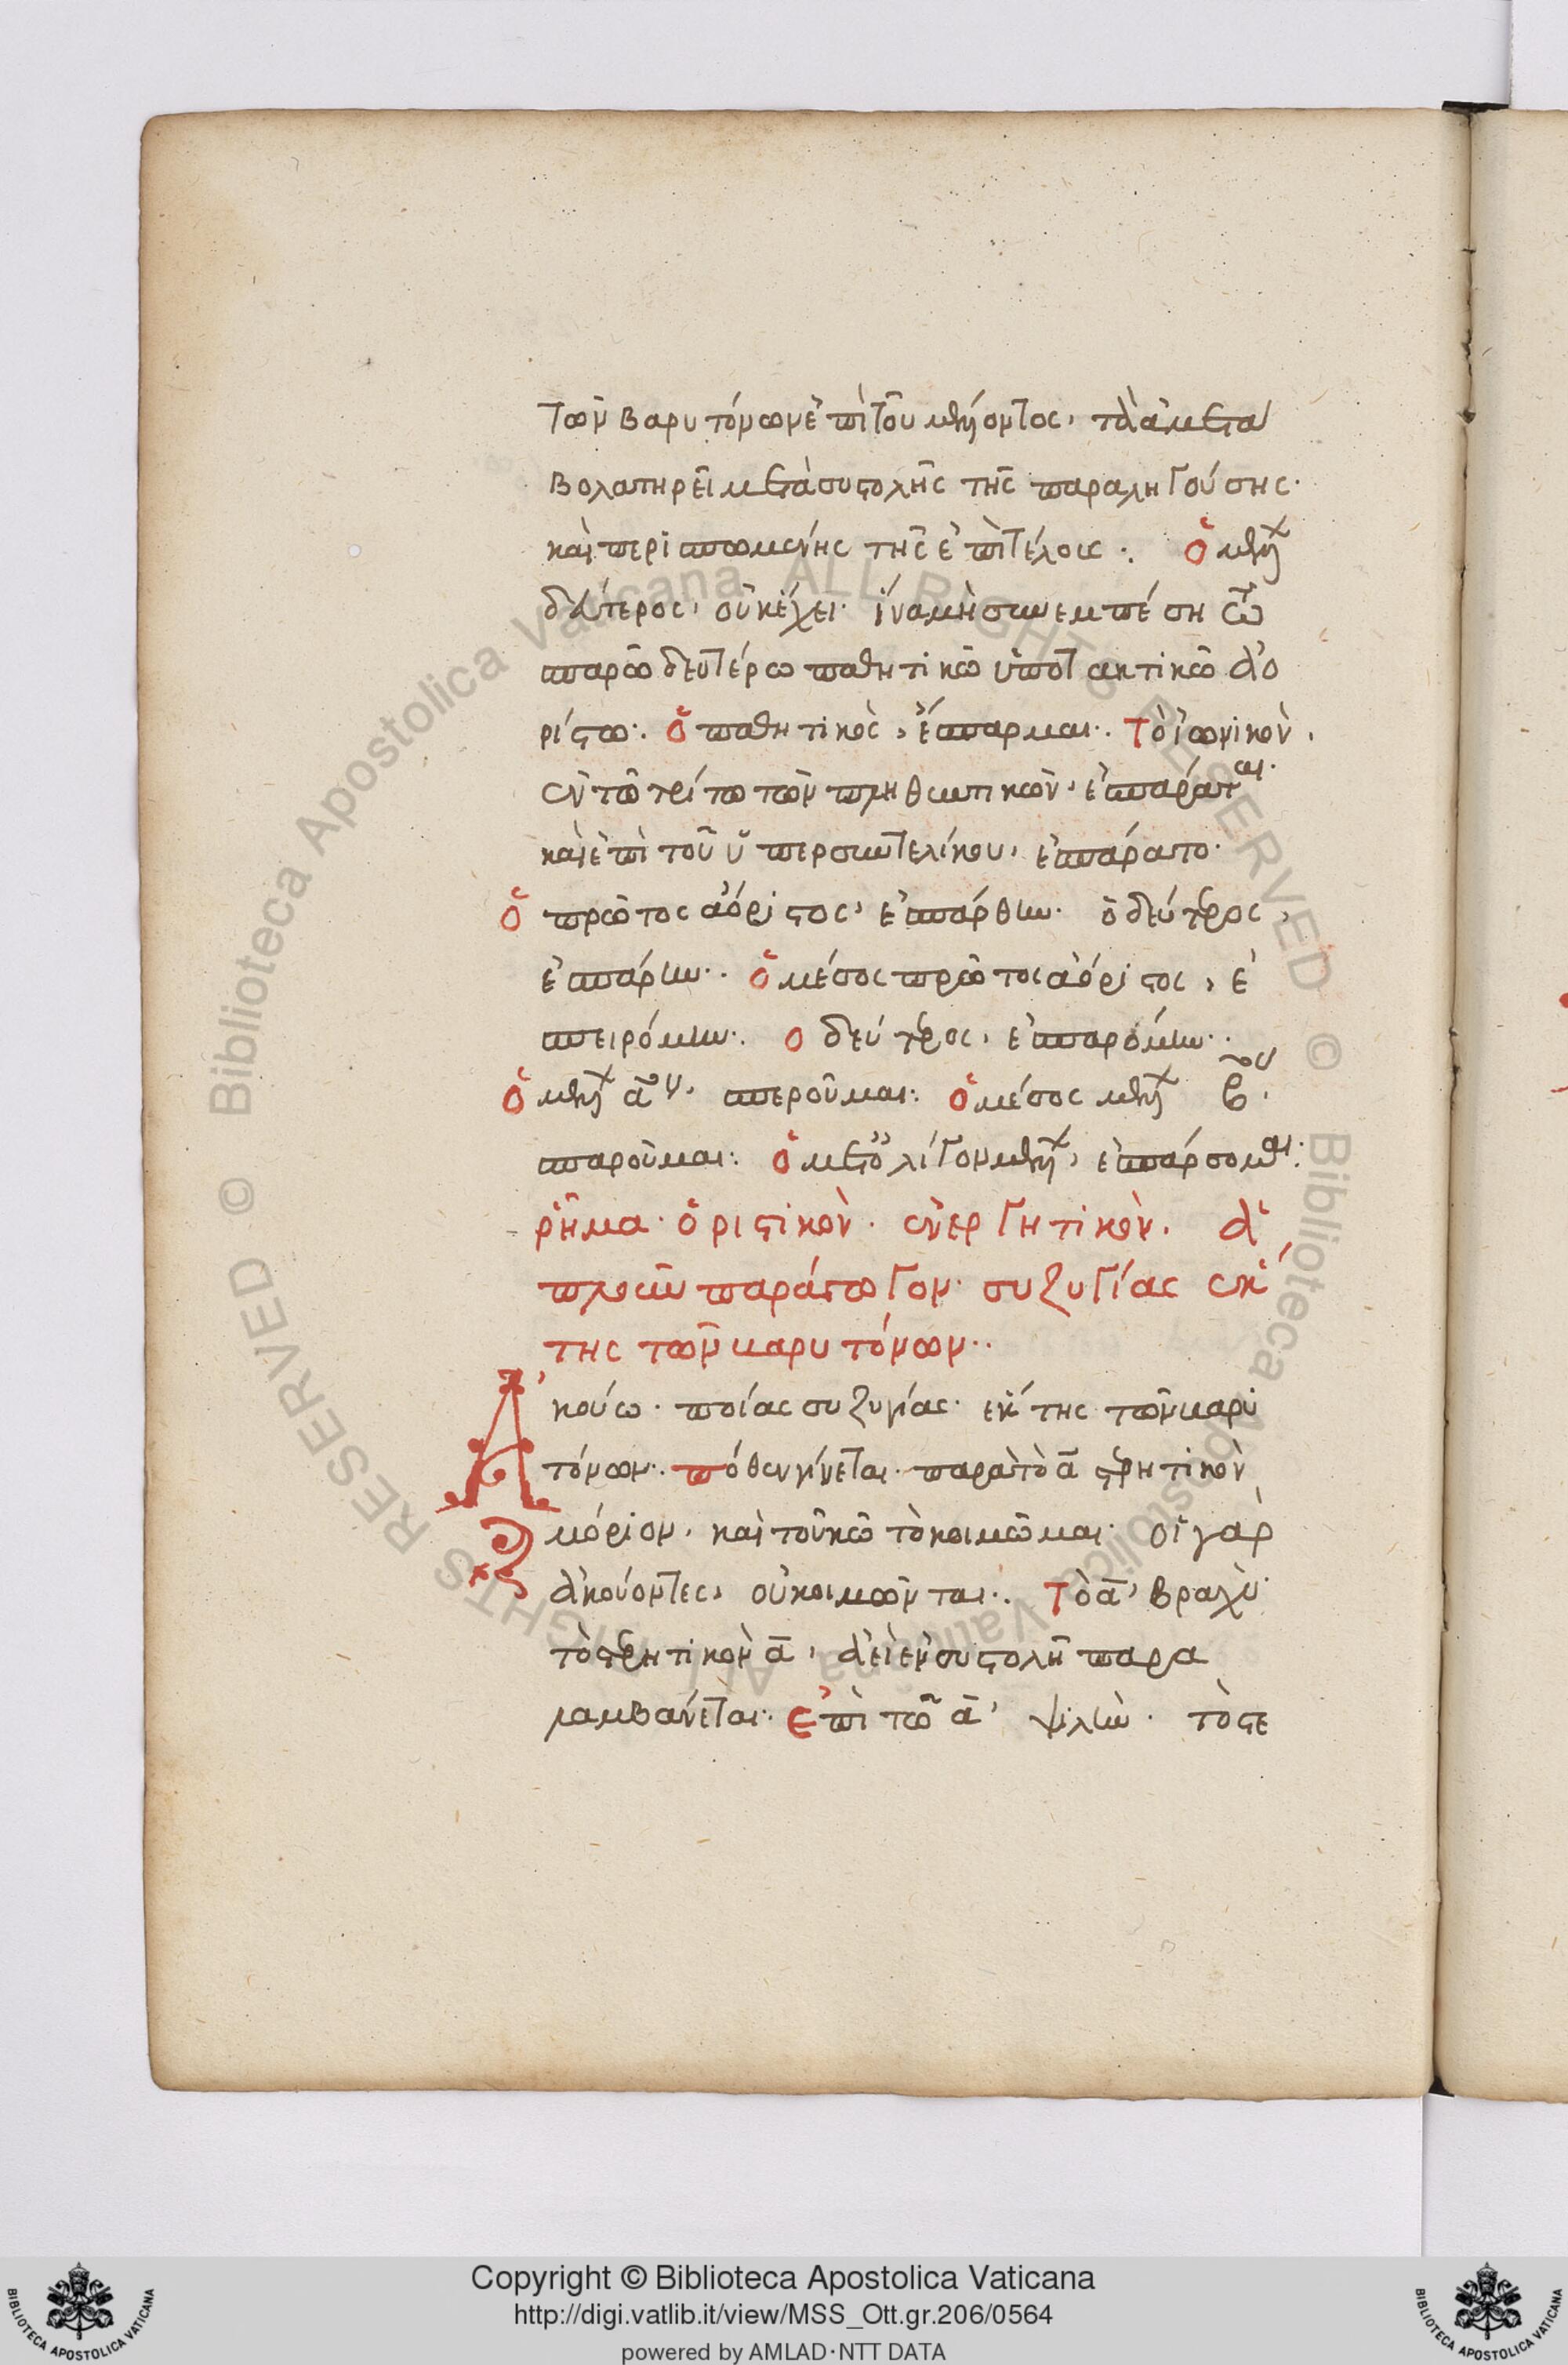 τῶν βαρυτόνων ἐπὶ τοῦ μέλλοντος, τὰ ἀμετά
βολα τηρεῖ μετὰ συστολῆς τῆς παραληγούσης·
καὶ περισπωμένης τῆς ἐπὶ τέλους: ὁ μέλλ
δεύτερος, οὐκ ἔχει· ἵνα μὴ συνεμπέση τῶ
σπαρῶ δευτέρω παθητικῶ ὑποτακτικῶ ἀο
ρίστω: ὁ παθητικὸς, ἔσπαρμαι: Τὸ ἰωνικὸν,
ἐν τῶ τρίτω τῶν πληθυντικῶν, ἐσπάραται·
καὶ ἐπὶ τοῦ ὑπερσυντελίκου, ἐσπάρατο·
ὁ πρῶτος ἀόριστος, ἐσπάρθην· ὁ δεύτερος,
ἐσπάρην: ὁ μέσος πρῶτος ἀόριστος, ἐ
σπειρόμην: ο δεύτερος, ἐσπαρόμην:
ὁ μέλλ α ος· σπεροῦμαι: ὁ μέσος μέλλ β ος·
σπαροῦμαι: ὁ μετ' ὀλίγον μέλλ, ἐσπάρσομαι:
ῥῆμα· ὁριστικὸν· ἐνεργητικὸν· ἁ
πλοῦν παράγωγον· συζυγίας ἕκ
της τῶν βαρυτόνων:
Ἀκούω· ποίας συζυγίας· ἕκτης τῶν βαρυ
τόνων: πόθεν γίνεται· παρὰ τὸ α στερητικὸν
μόριον, καὶ τοῦ κῶ τὸ κοιμῶμαι· οἱ γὰρ
ἀκούοντες, οὐ κοιμῶνται: Τὸ α, βραχὺ·
τὸ στερητικὸν α, ἀεὶ ἐν συστολῆ παρα
λαμβάνεται: Ἐπὶ τῶ α, ψιλὴν· τὸ στε
Copyright © Biblioteca Apostolica Vaticana
http://digi.vatlib.it/view/MSS_Ott.gr.206/0564
powered by AMLAD·NTT DATA